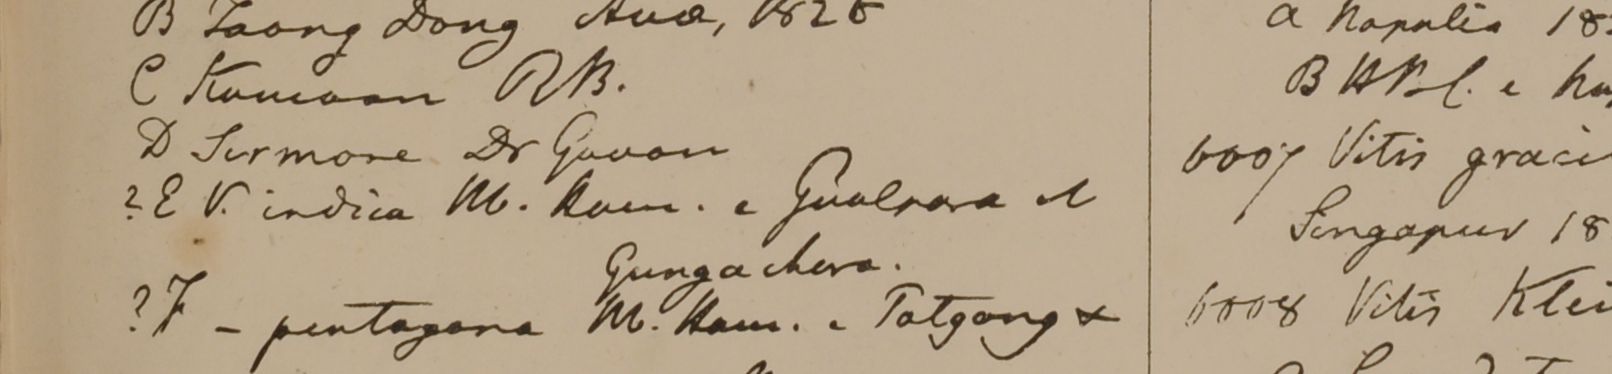 B Taong Dong Avae, 1826
C Kamaon R B.
D Sirmore Dr Govan
? E V. indica M. Ham. e Gualpara et
Gungachora.
? F — pentagona M. Ham. e Patgong &
a Napalia 18
B HBC. e
6007 Vitis graci
Singapur 18
6008 Vitis Klei